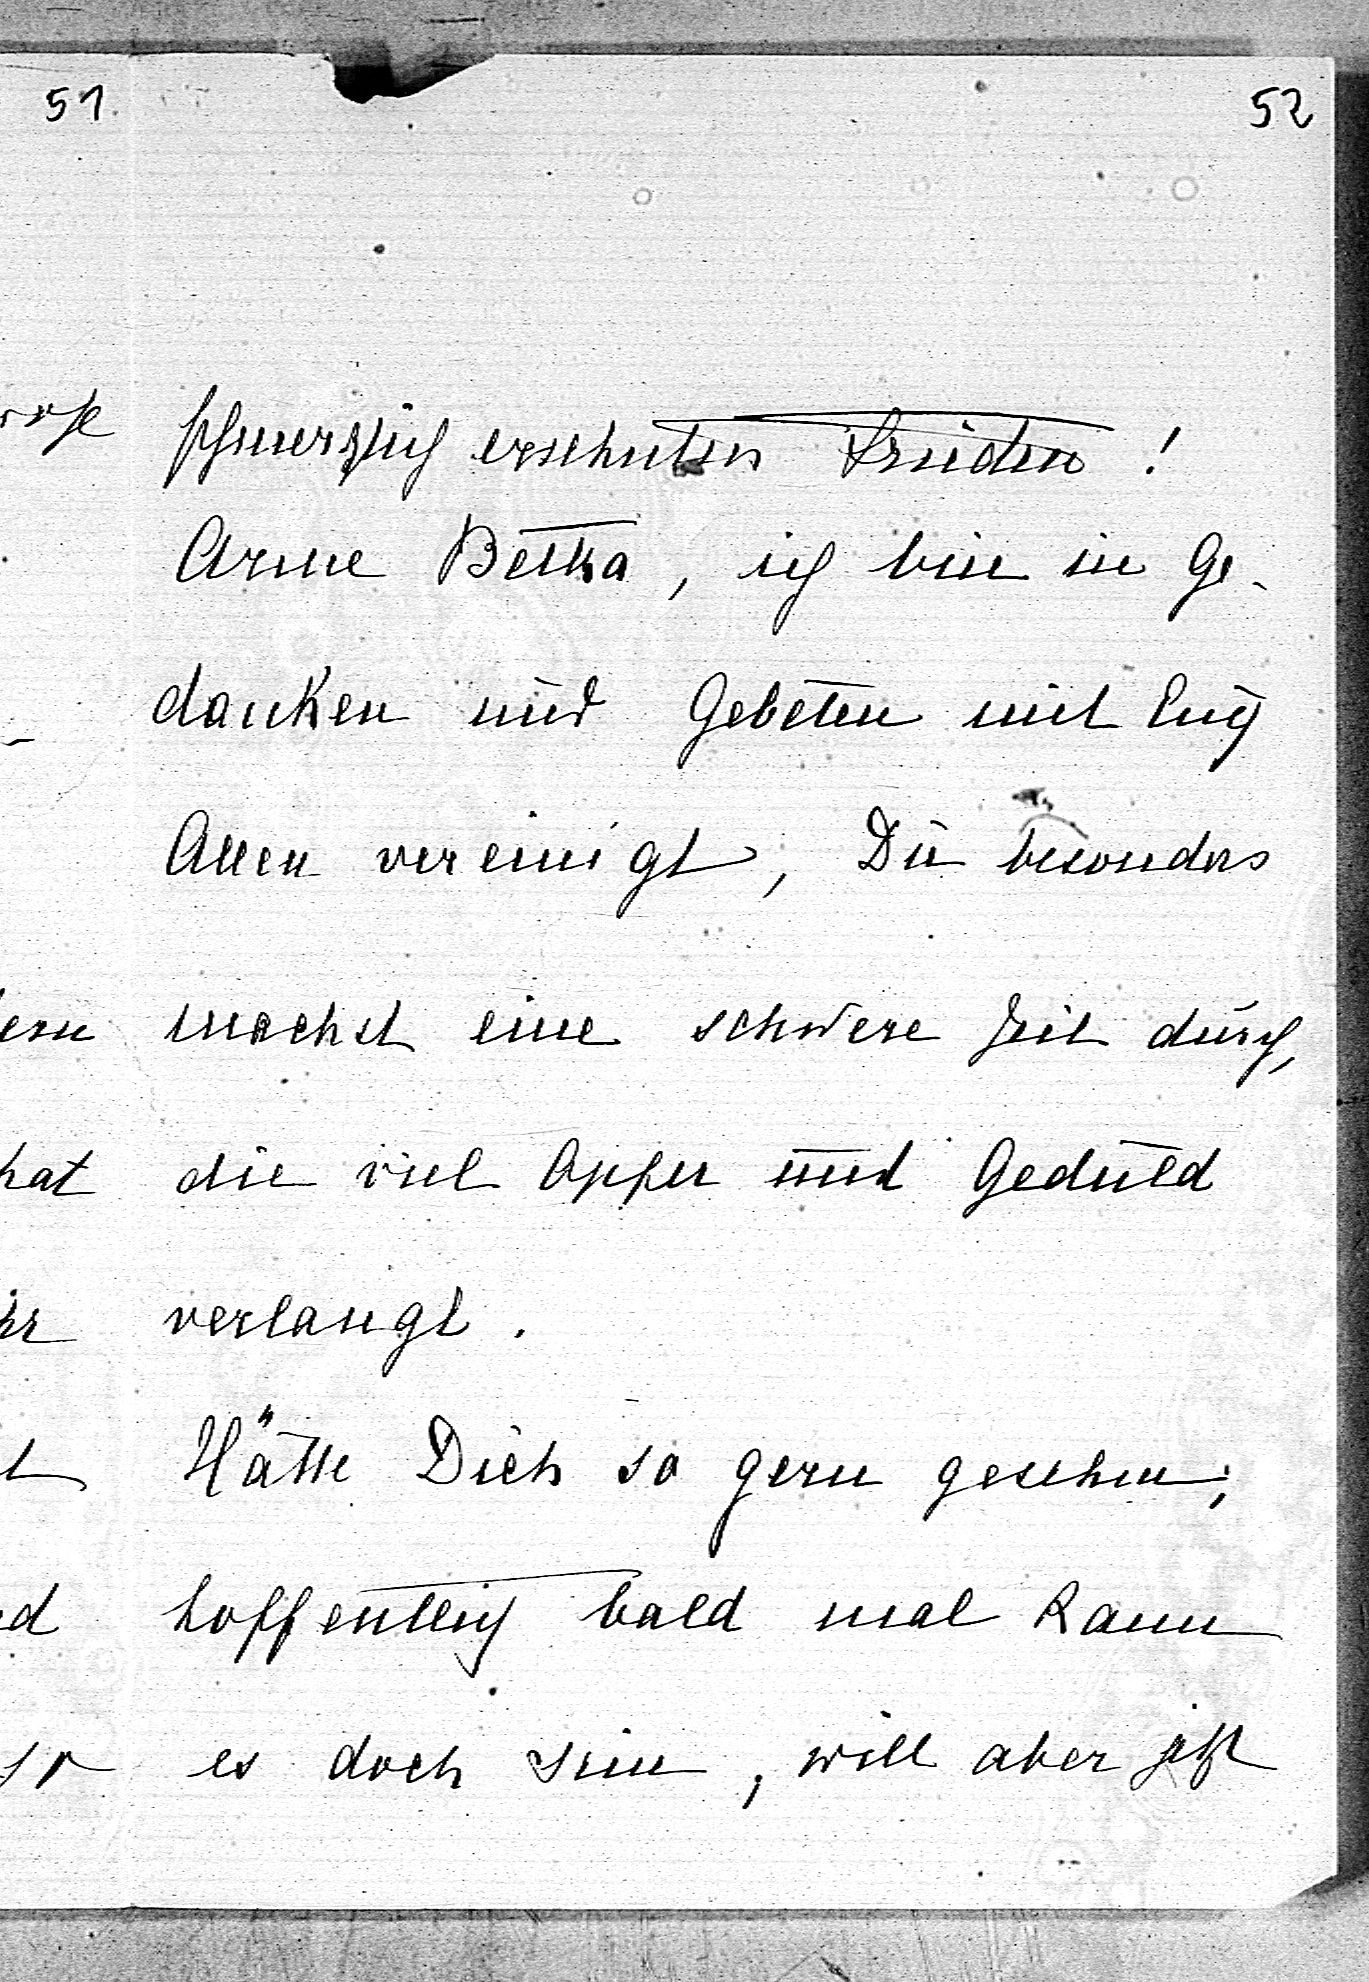 51
52
schmerzlich ersehnten Frieden!
Arme Betka, ich bin in Ge-
danken und Gebeten mit Euch
Allen vereinigt, Du besonders
machst eine schwere Zeit durch,
die viel Opfer und Geduld
verlangt.
Hätte Dich so gern gesehen;
hoffentlich bald mal kann
es doch sein, will aber jetzt